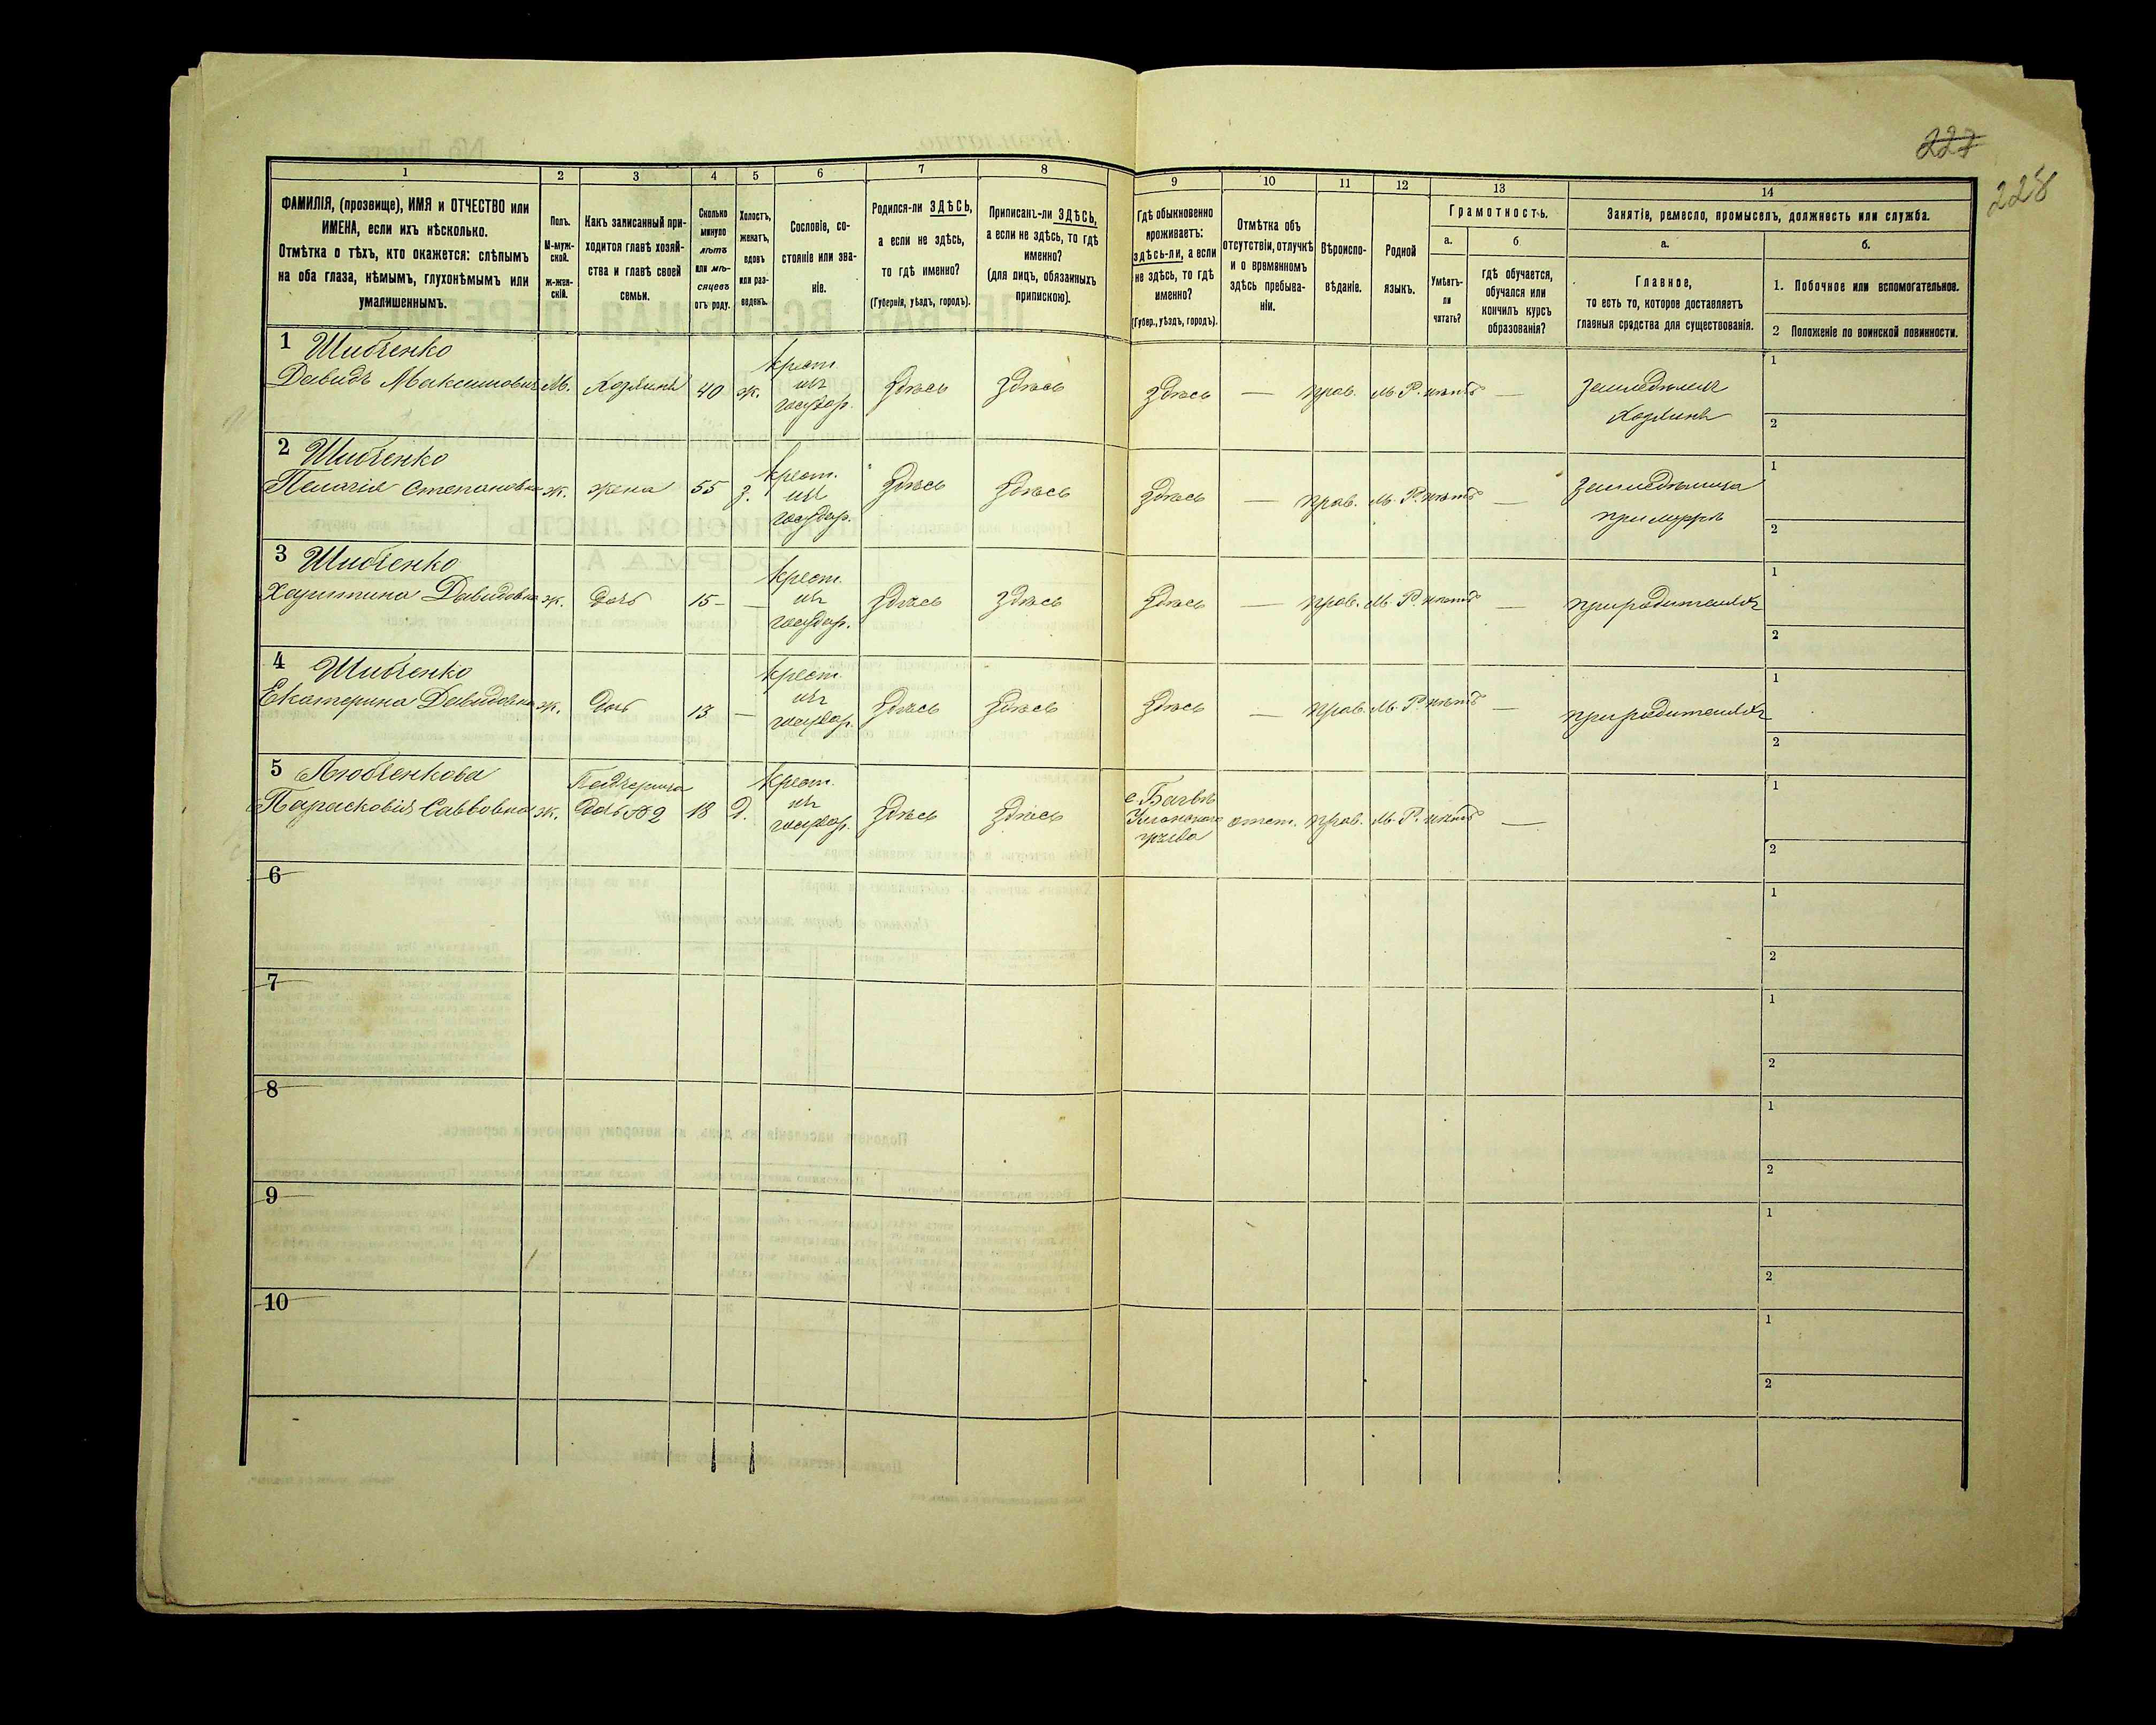 227
228
1 2 3 4 5 6 7 8 9 10 11 12 13 14
ФАМИЛІЯ, (прозвище), ИМЯ и ОТЧЕСТВО или
ИМЕНА, если ихъ нѣсколько.
Отмѣтка о тѣхъ, кто окажется: слѣпымъ
на оба глаза, нѣмымъ, глухонѣмымъ или
умалишеннымъ.
Полъ.
М-муж-
ской.
Ж-жен-
скій.
Какъ записанный при-
ходится главѣ хозяй-
ства и главѣ своей
семьи.
Сколько
минуло
лѣтъ
или мѣ-
сяцевъ
отъ роду.
Холостъ,
женатъ,
вдовъ
или раз-
веденъ.
Сословіе, со-
стояніе или зва-
ніе.
Родился-ли ЗДѢСЬ,
а если не здѣсь,
то гдѣ именно?
(Губернія, уѣздъ, городъ).
Приписанъ-ли ЗДѢСЬ,
а если не здѣсь, то гдѣ
именно?
(для лицъ, обязанныхъ
припискою).
Гдѣ обыкновенно
проживаетъ:
здѣсь-ли, а если
не здѣсь, то гдѣ
именно?
(Губер., уѣздъ, городъ).
Отмѣтка объ
отсутствіи, отлучкѣ
и о временномъ
здѣсь пребыва-
ніи.
Вѣроиспо-
вѣданіе.
Родной
языкъ.
Грамотность.
а. б
Умѣетъ-
ли
читать?
гдѣ обучается,
обучался или
кончилъ курсъ
образованія?
Занятіе, ремесло, промыселъ, должность или служба.
а. б.
Главное,
то есть то, которое доставляетъ
главныя средства для существованія.
1. Побочное или вспомогательное.
2 Положеніе по воинской повинности.
1 Шибченко
Давидъ Максимовичъ М. Хозяинъ 40 ж. крест. изъ государ. Здѣсь Здѣсь Здѣсь — прав. М.Р. нѣтъ —
Земледѣлецъ
Хозяинъ
1
2
2 Шибченко
Пелагія Степановна ж. жена 55 з. крест. изъ государ. Здѣсь Здѣсь Здѣсь — прав. М.Р. нѣтъ —
Земледѣлица
при мужѣ
1
2
3 Шибченко
Харитина Давидовна ж. дочь 15 — крест. изъ государ. Здѣсь Здѣсь Здѣсь — прав. М.Р. нѣтъ —
при родителяхъ
1
2
4 Шибченко
Екатерина Давидовна ж. дочь 13 — крест. изъ государ. Здѣсь Здѣсь Здѣсь — прав. М.Р. нѣтъ —
при родителяхъ
1
2
5 Любченкова
Парасковія Саввовна ж. Падчерица дочь № 2 18 д. крест. изъ государ. Здѣсь Здѣсь
с. Багвѣ
уѣзда
отст. прав. М.Р. нѣтъ —
1
2
6
1
2
7
1
2
8
1
2
9
1
2
10
1
2